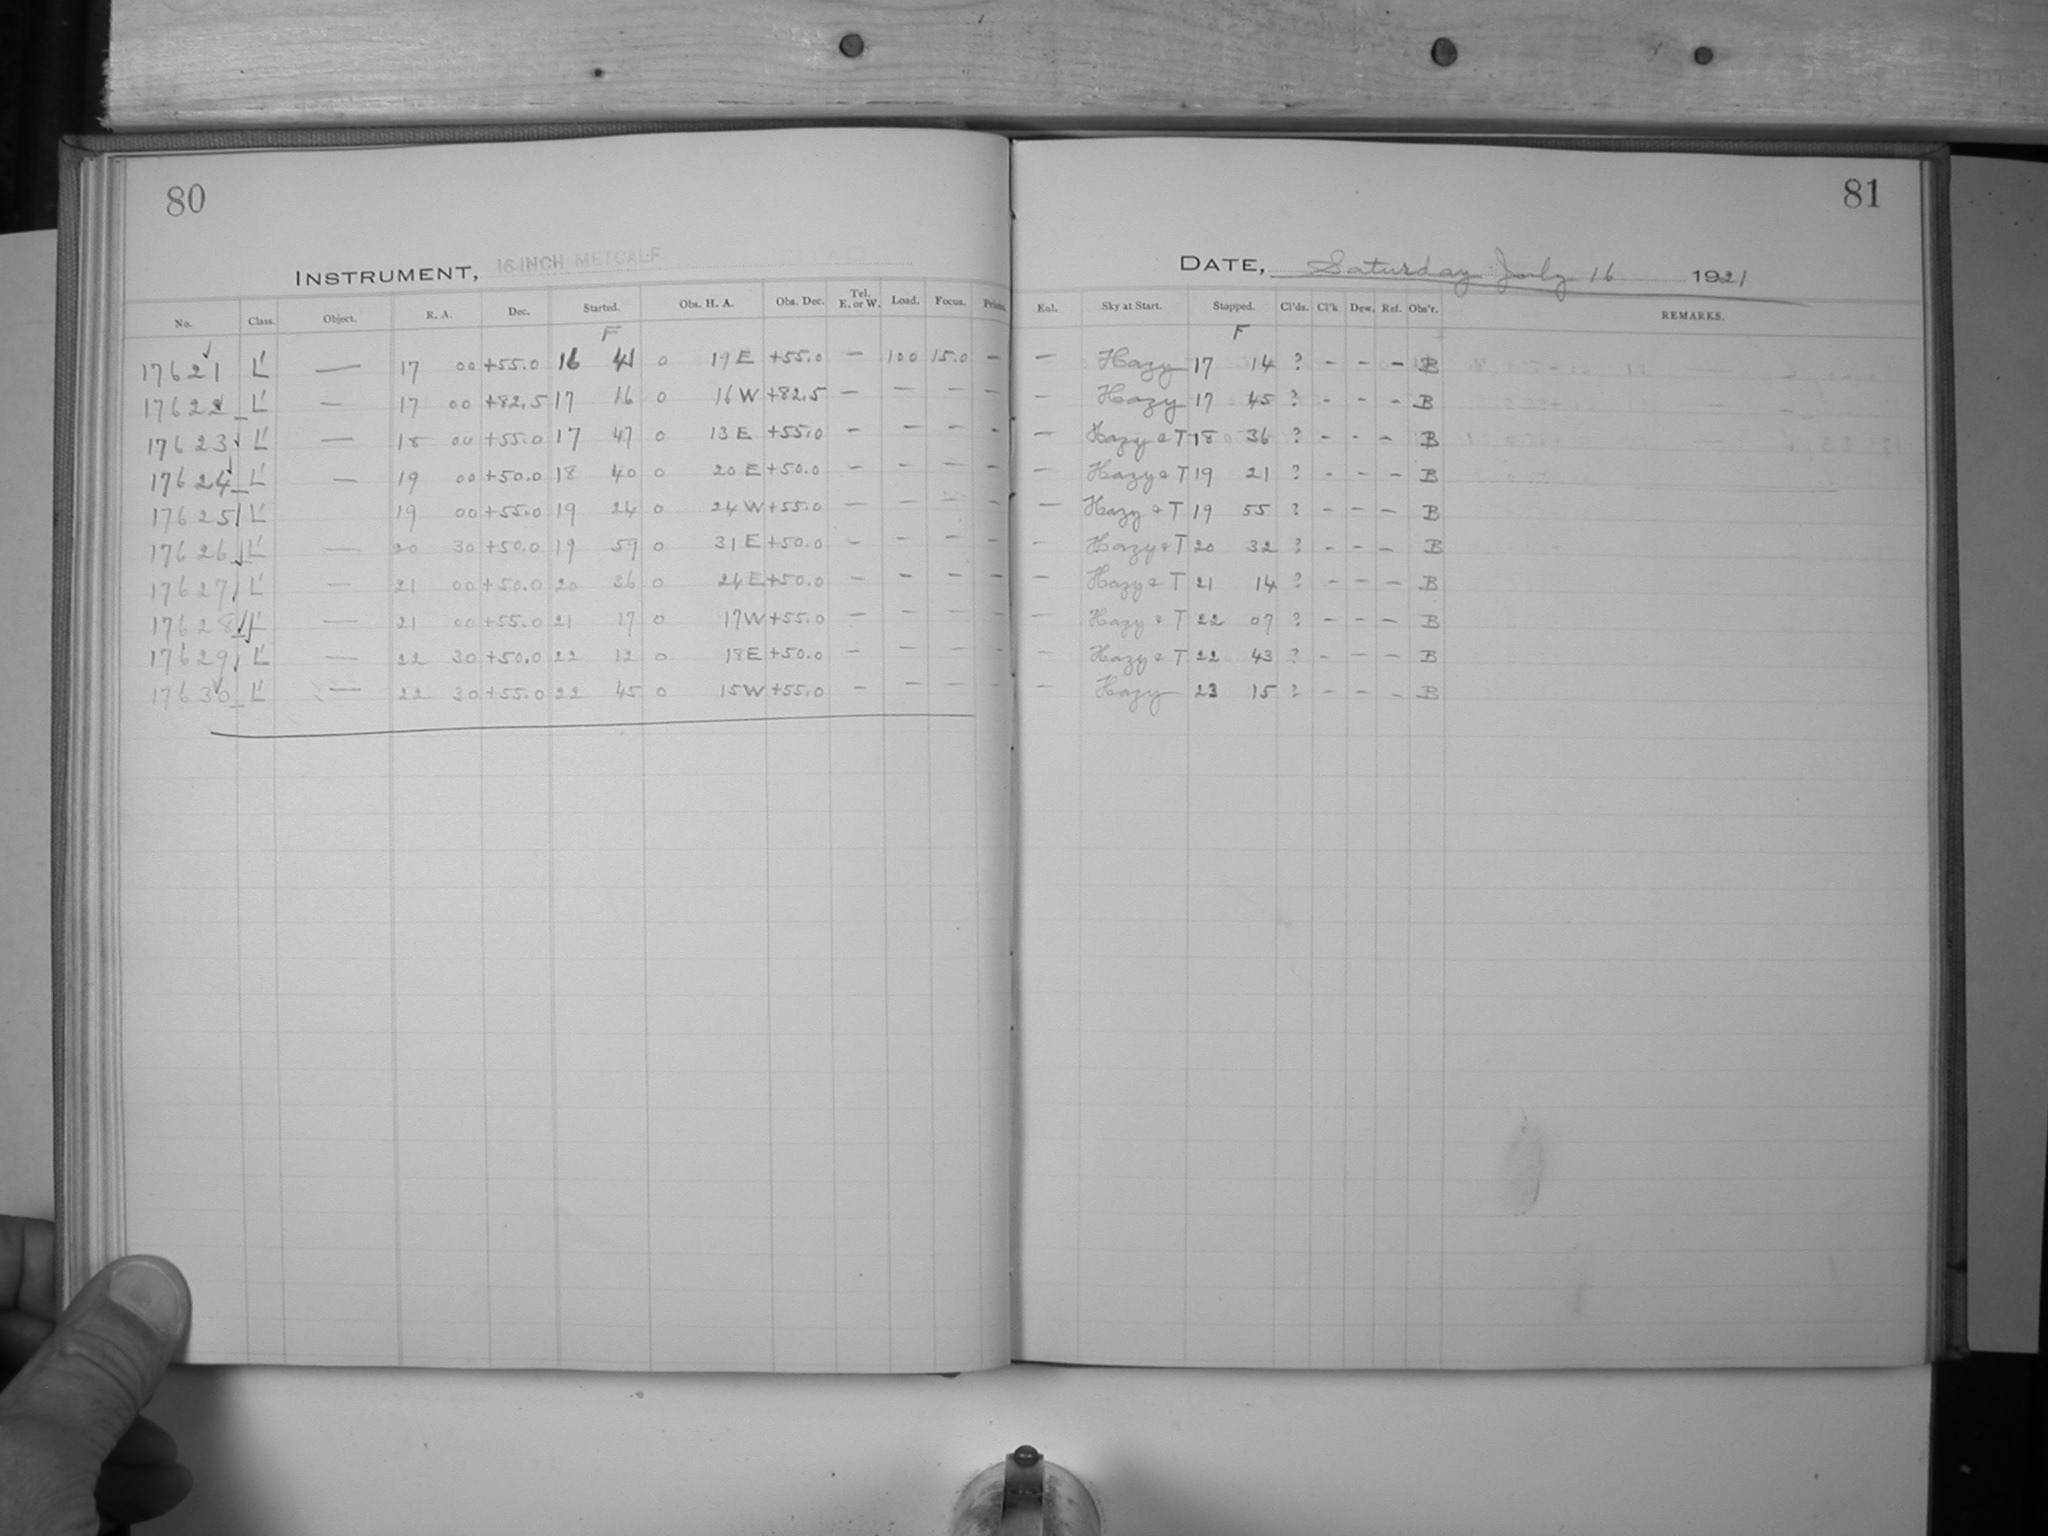 80
INSTRUMENT, 16-INCH METCALF
No. Class. Object. R. A. Dec. Started. Obs. H. A. Obs. Dec. Tel. E. or W. Load. Focus.
F
17621 L' — 17 00 +55.0 16 41 0 19 E +55.0 — 10.0 15.0 —
17622 L' — 17 00 +82.5 17 16 0 16 W +82.5 — — — —
17623 L' — 18 00 +55.0 17 47 0 13 E +55.0 — — — —
17624 L' — 19 00 +50.0 18 40 0 20 E +50.0 — — — —
17625 L' — 19 00 +55.0 19 24 0 24 W +55.0 — — — —
17626 L' — 20 30 +50.0 19 59 0 31 E +50.0 — — — —
17627 L' — 21 00 +50.0 20 36 0 24 E +50.0 — — — —
17628 L' — 21 00 +55.0 21 17 0 17 W +55.0 — — — —
17629 L' — 22 30 +50.0 22 12 0 18 E +50.0 — — — —
17630 L' — 22 30 +55.0 22 45 0 15 W +55.0 — — — —
81
DATE, Saturday July 16 1921
Enl. Sky at Start. Stopped. Cl'ds. Cl'k Dew. Ref. Obs'r. REMARKS.
F
— Hazy 17 14 ? - - - B
— Hazy 17 45 ? - - - B
— Hazy & T 18 36 ? - - - B
— Hazy & T 19 21 ? - - - B
— Hazy & T 19 55 ? - - - B
— Hazy & T 20 32 ? - - - B
— Hazy & T 21 14 ? - - - B
— Hazy & T 22 07 ? - - - B
— Hazy & T 22 43 ? - - - B
— Hazy 23 15 ? - - - B